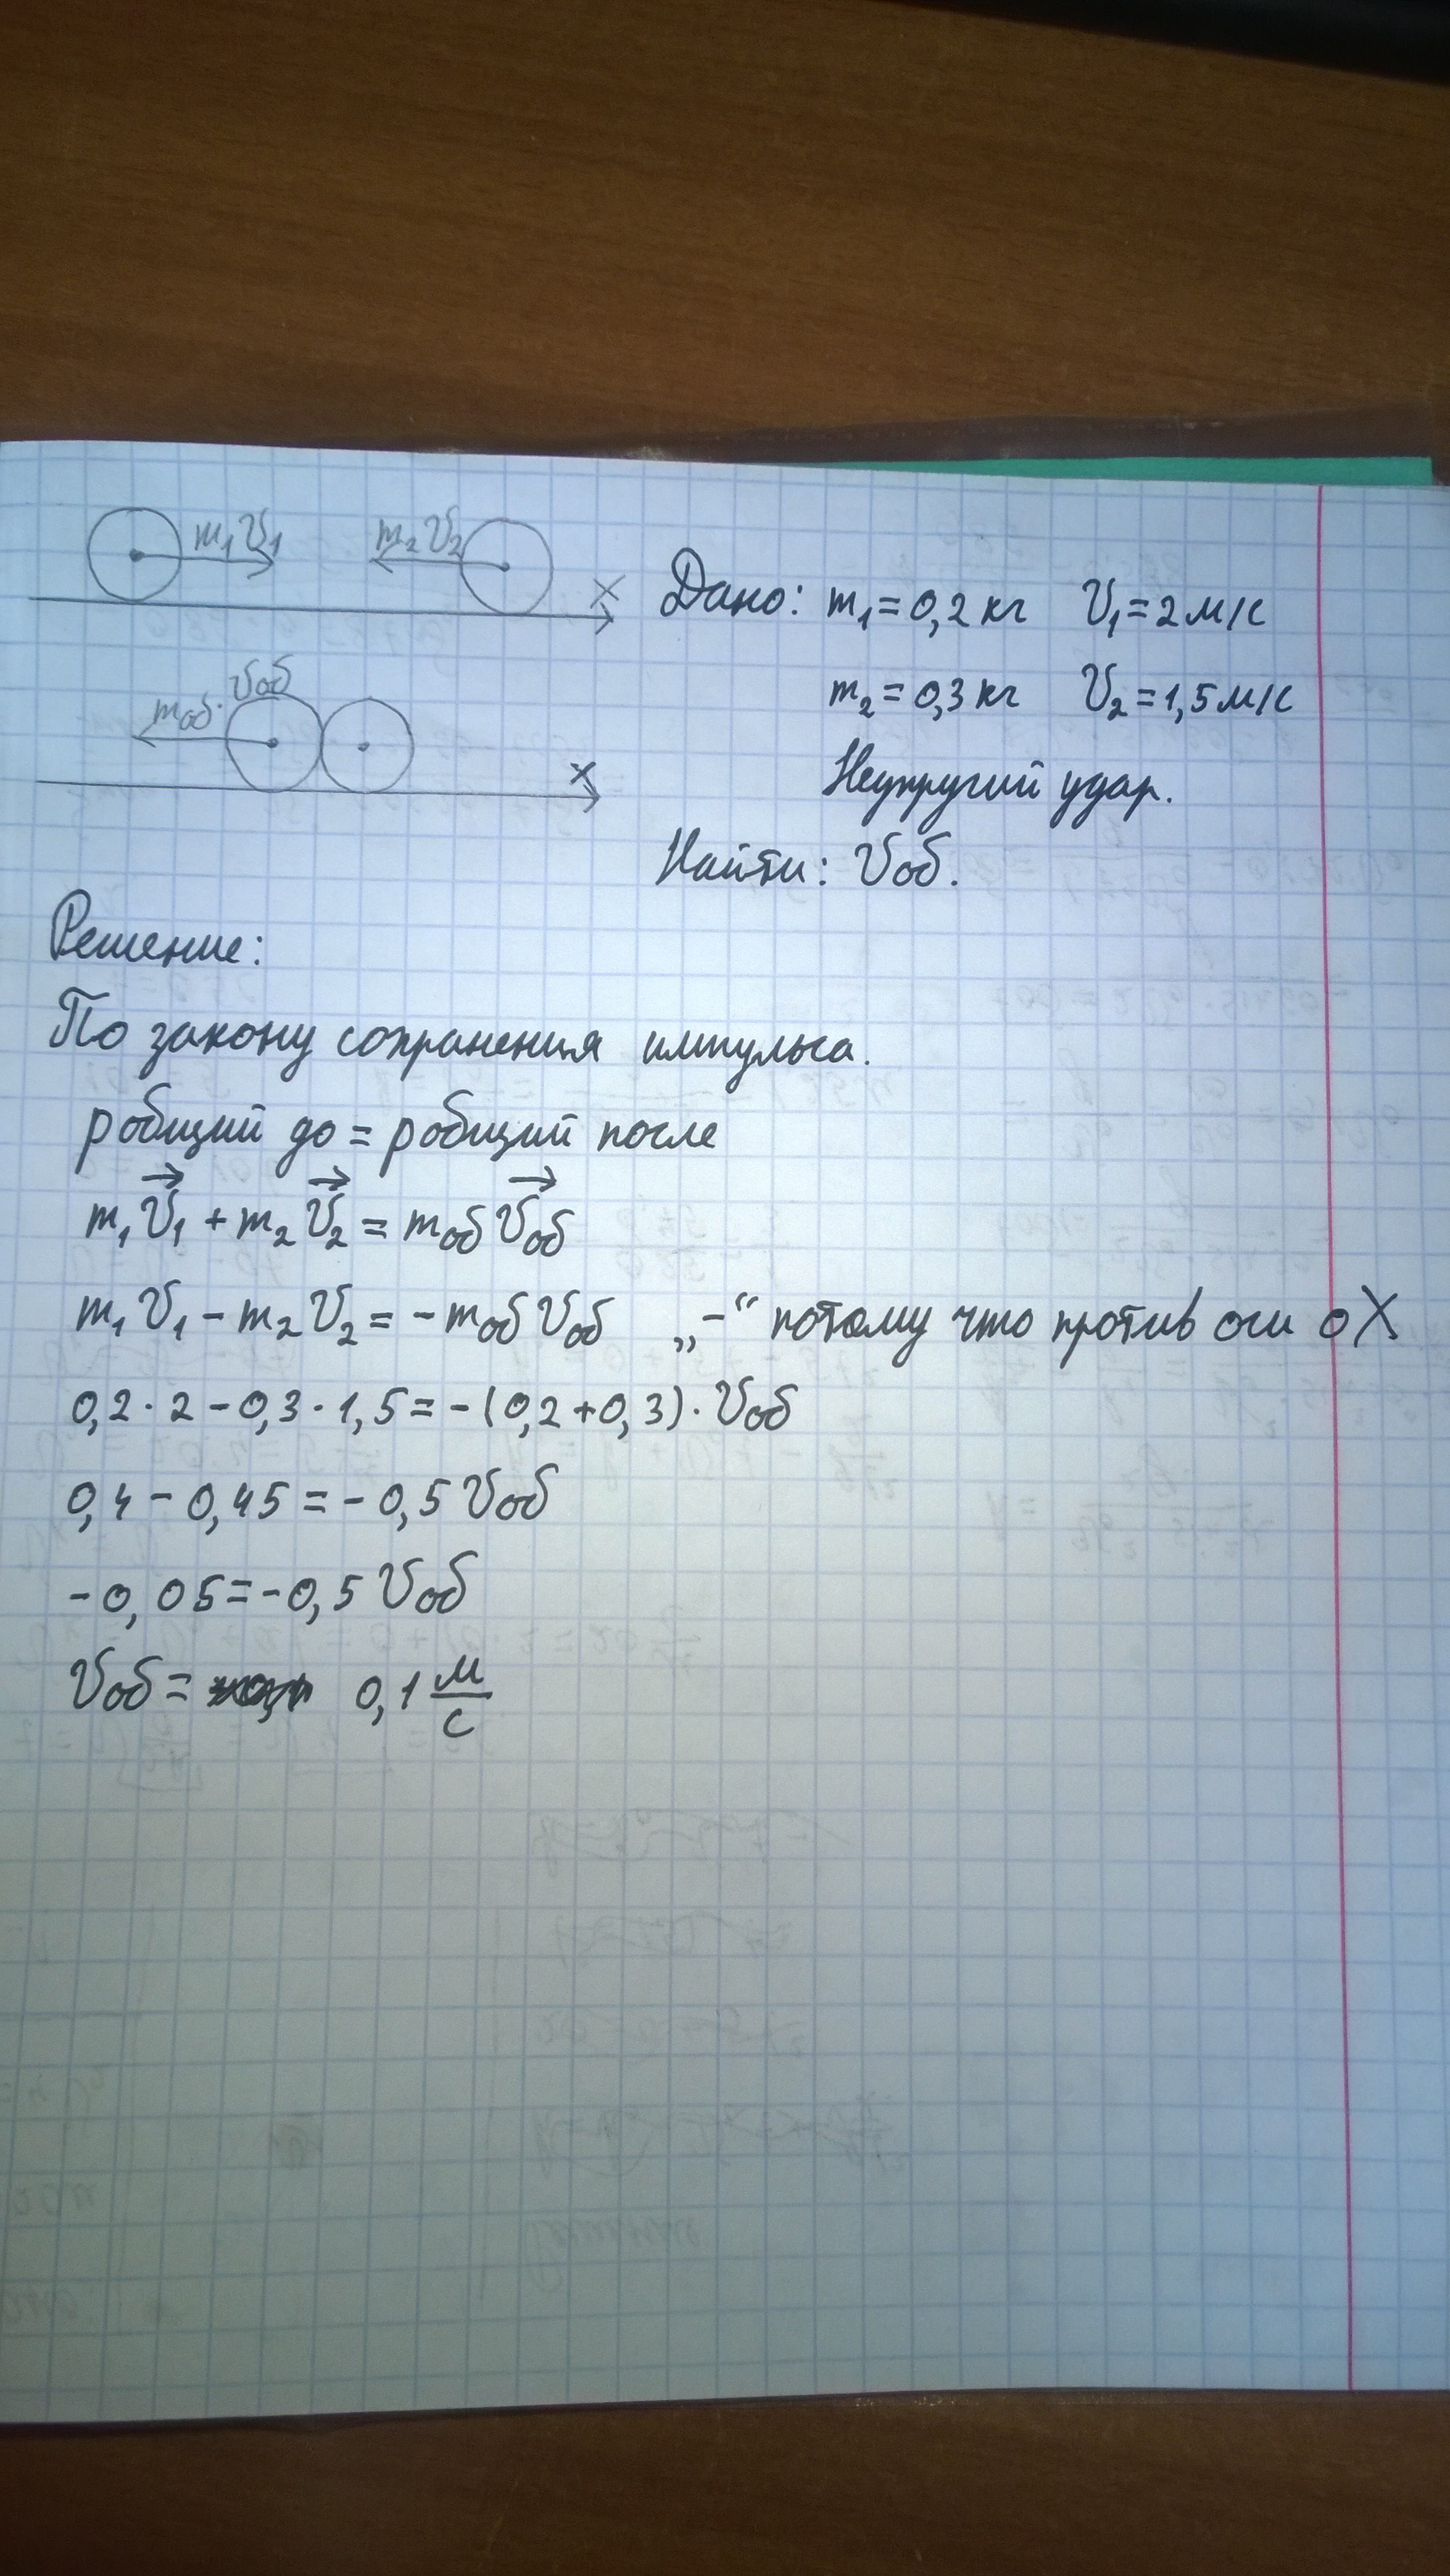 m₁V₁ m₂V₂
X
mоб·Vоб
X
Дано: m₁=0,2кг V₁=2м/с
m₂=0,3кг V₂=1,5м/с
Неупругий удар.
Найти: Vоб.
Решение:
По закону сохранения импульса.
pобщий до = pобщий после
m₁V⃗₁ + m₂V⃗₂ = mобV⃗об
m₁V₁ - m₂V₂ = - mобVоб „-“ потому что против оси оХ
0,2·2-0,3·1,5=-(0,2+0,3)·Vоб
0,4-0,45=-0,5Vоб
-0,05=-0,5Vоб
Vоб= 0,1 м/с